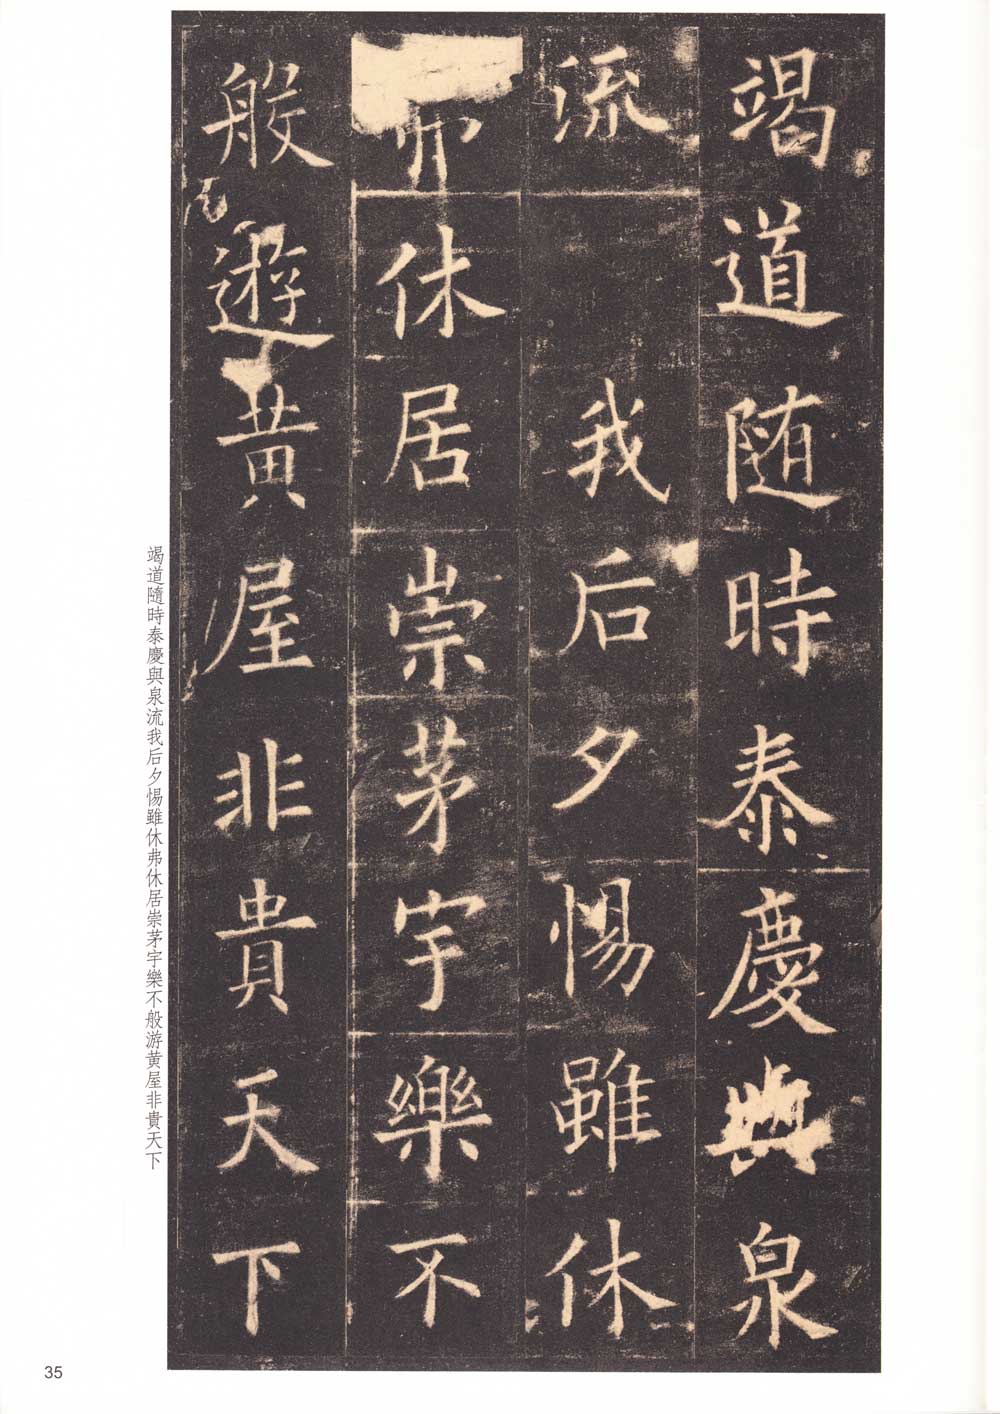 竭道随時泰慶與泉
流我后夕惕雖休
休居崇茅宇樂不
般遊黄屋非貴天下
竭道隨時泰慶與泉流我后夕惕雖休弗休居崇茅宇樂不般游黄屋非貴天下
35